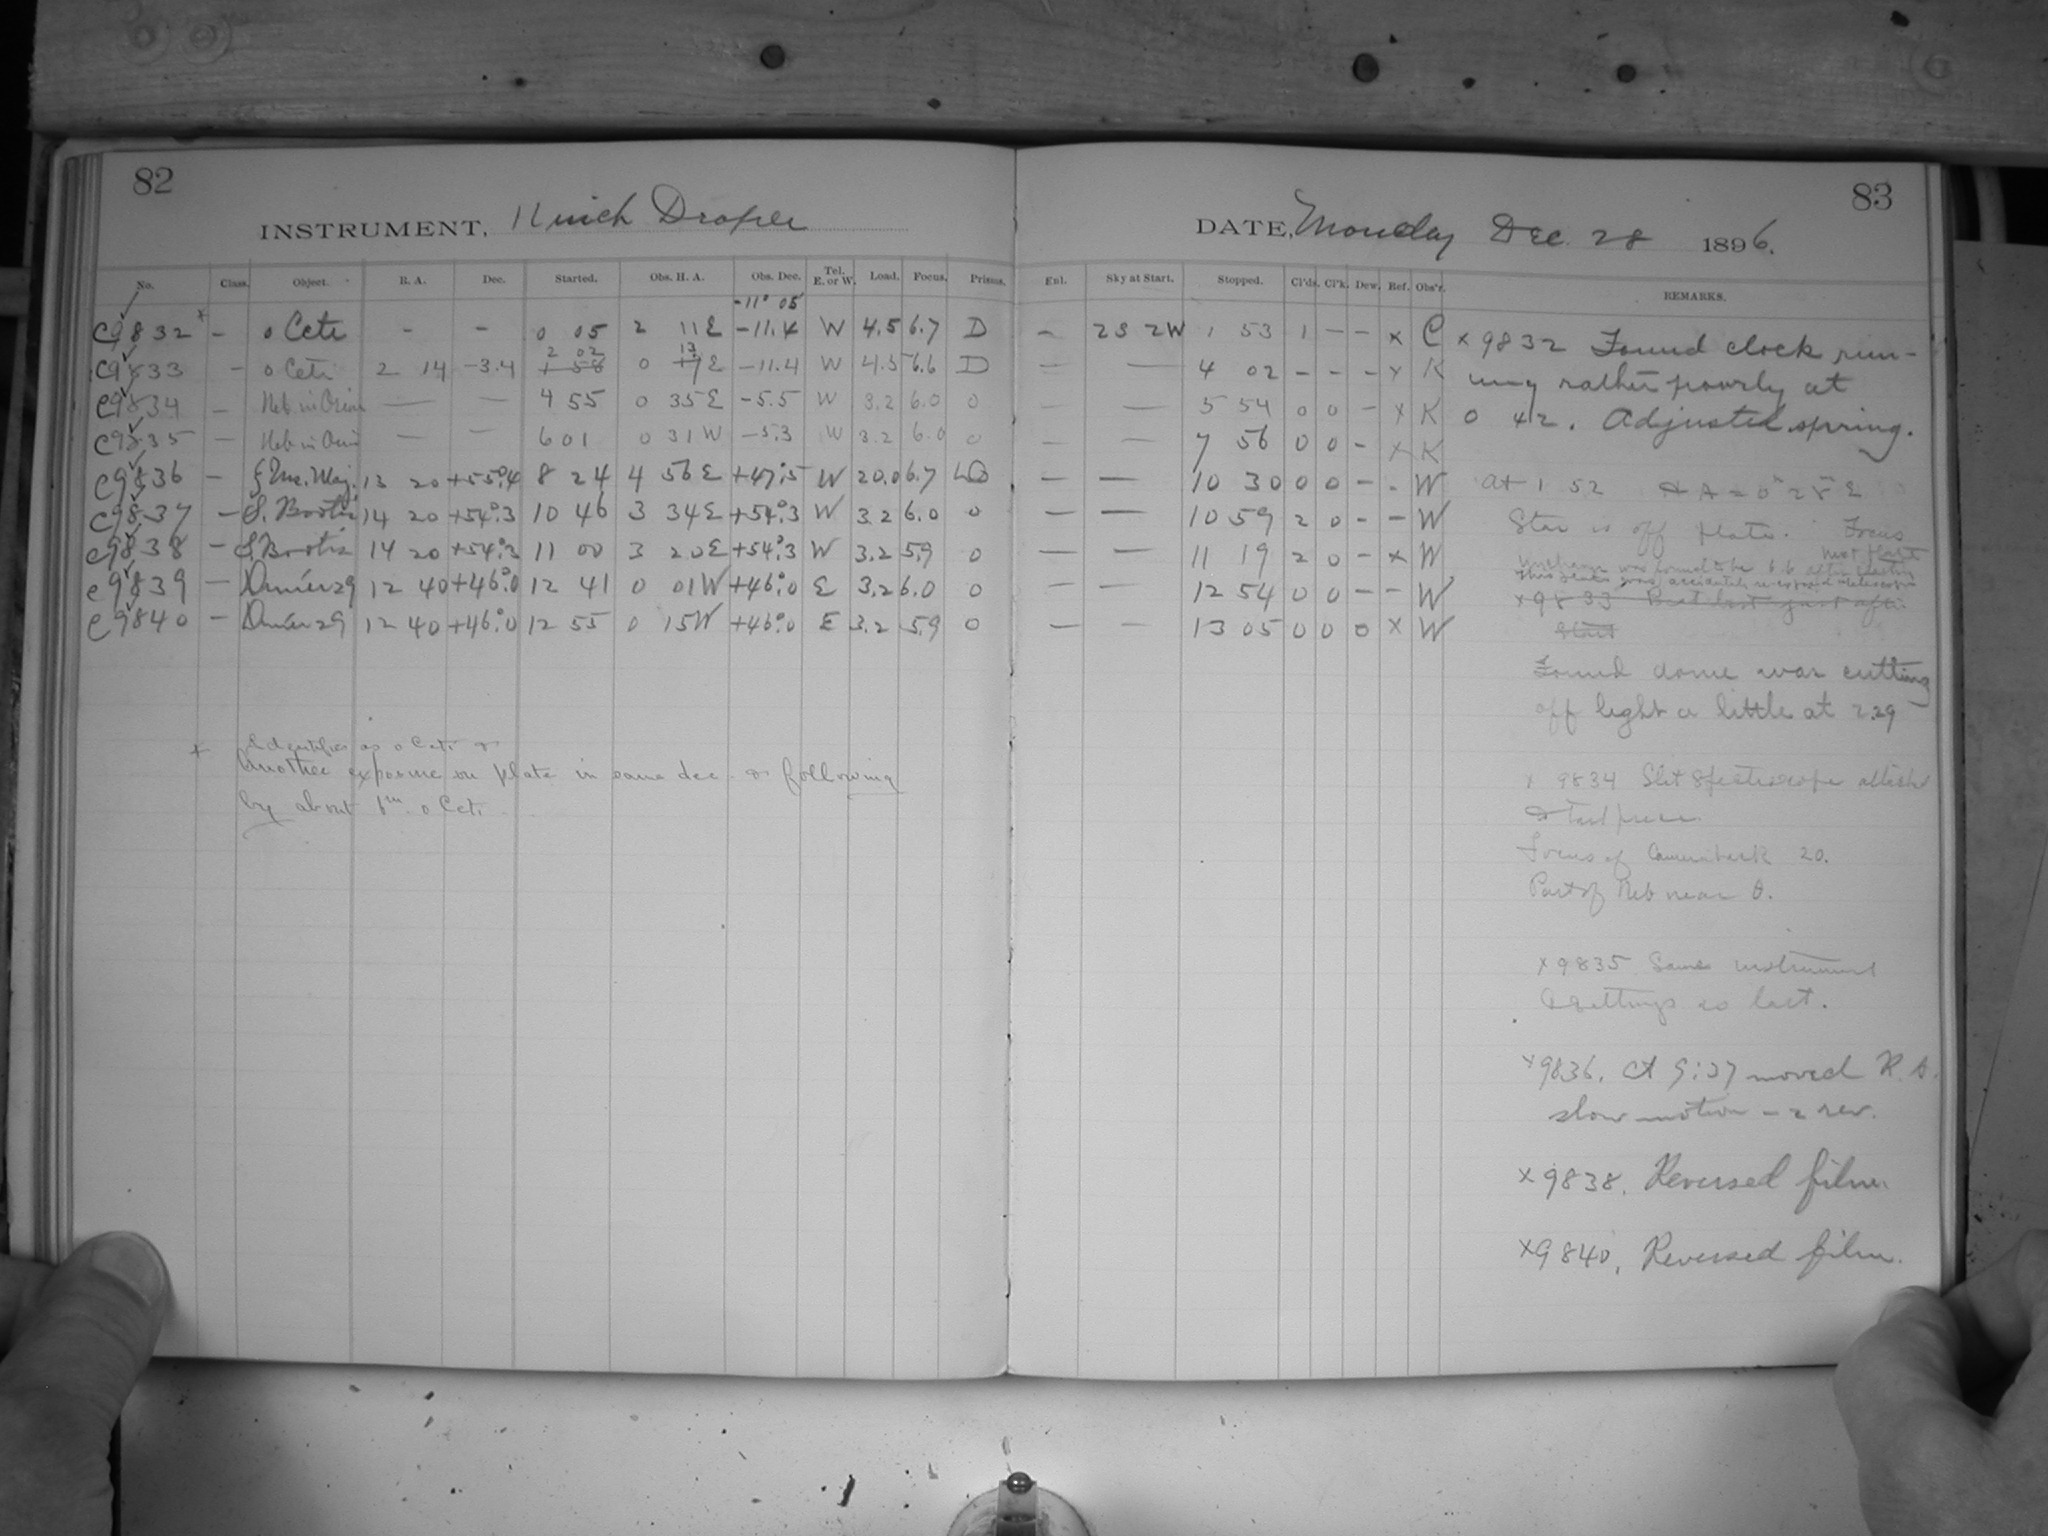 82
INSTRUMENT, 11 inch Draper
No. Class. Object. R. A. Dec. Started. Obs. H. A. Obs. Dec. Tel. E. or W. Load. Focus. Prisms.
-11° 05'
C9832 x - o Ceti - - 0 05 2 11 E -11.4 W 4.5 6.7 D
2 02 13
C9833 - o Ceti 2 14 -3.4 1 58 0 17 E -11.4 W 4.5 6.6 D
C9834 - Neb in Orion — — 4 55 0 35 E -5.5 W 3.2 6.0 0
C9835 - Neb in Orion — — 6 01 0 31 W -5.3 W 3.2 6.0 0
C9836 - ζ Urs. Maj. 13 20 +55°.4 8 24 4 56 E +47°.5 W 20.0 6.7
C9837 - S. Bootis 14 20 +54°.3 10 46 3 34 E +54°.3 W 3.2 6.0 0
C9838 - S. Bootis 14 20 +54°.3 11 00 3 20 E +54°.3 W 3.2 5.9 0
C9839 - Dunér 29 12 40 +46°.0 12 41 0 01 W +46°.0 E 3.2 6.0 0
C9840 - Dunér 29 12 40 +46°.0 12 55 0 15 W +46°.0 E 3.2 5.9 0
x Identifies as o Ceti &
Another exposure on plate in same dec. & following
by about 1m. o Ceti
83
DATE, Monday Dec. 28 1896.
Enl. Sky at Start. Stopped. Cl'ds. Cl'k. Dew. Ref. Obs'r. REMARKS.
- 2S 2W 1 53 1 - - x C
— — 4 02 - - - x K
— — 5 54 0 0 - x K
— — 7 56 0 0 - x K
— — 10 30 0 0 - . W
— — 10 59 2 0 - - W
— — 11 19 2 0 - x W
— — 12 54 0 0 - - W
— — 13 05 0 0 0 x W
x 9832 Found clock run-
ning rather poorly at
0 42. Adjusted spring.
At 1 52
Star is off plate. Focus
next plate
x 9833
start
Found dome was cutting
off light a little at 2.29
x 9834 Slit Spectroscope
Focus of Camera back 20.
Part of Neb near θ.
x 9835 Same instrument
& settings as last.
x 9836. At 9:27 moved R. A.
slow motion - 2 rev.
x 9838. Reversed film.
x 9840. Reversed film.